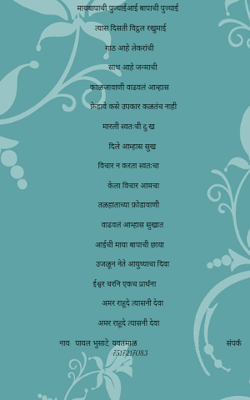 मायबापाची पुण्याईआई बापाची पुण्याई
त्यास दिसती विठ्ठल रखुमाई
गाठ आहे लेकरांची
साथ आहे जन्माची
काळजावाणी वाढवलं आम्हास
फेडावे कसे उपकार कळतंच नाही
मारली स्वतःची दुःख
दिले आम्हास सुख
विचार न करता स्वतःचा
केला विचार आमचा
तळहाताच्या फ़ोडावाणी
वाढवलं आम्हास सुखात
आईची माया बापाची छाया
उजळून नेते आयुष्याचा दिवा
ईश्वर चरनि एकच प्रार्थना
अमर राहूदे त्यासनी देवा
अमर राहूदे त्यासनी देवा
नाव पायल भुसाटे यवतमाळ संपर्क